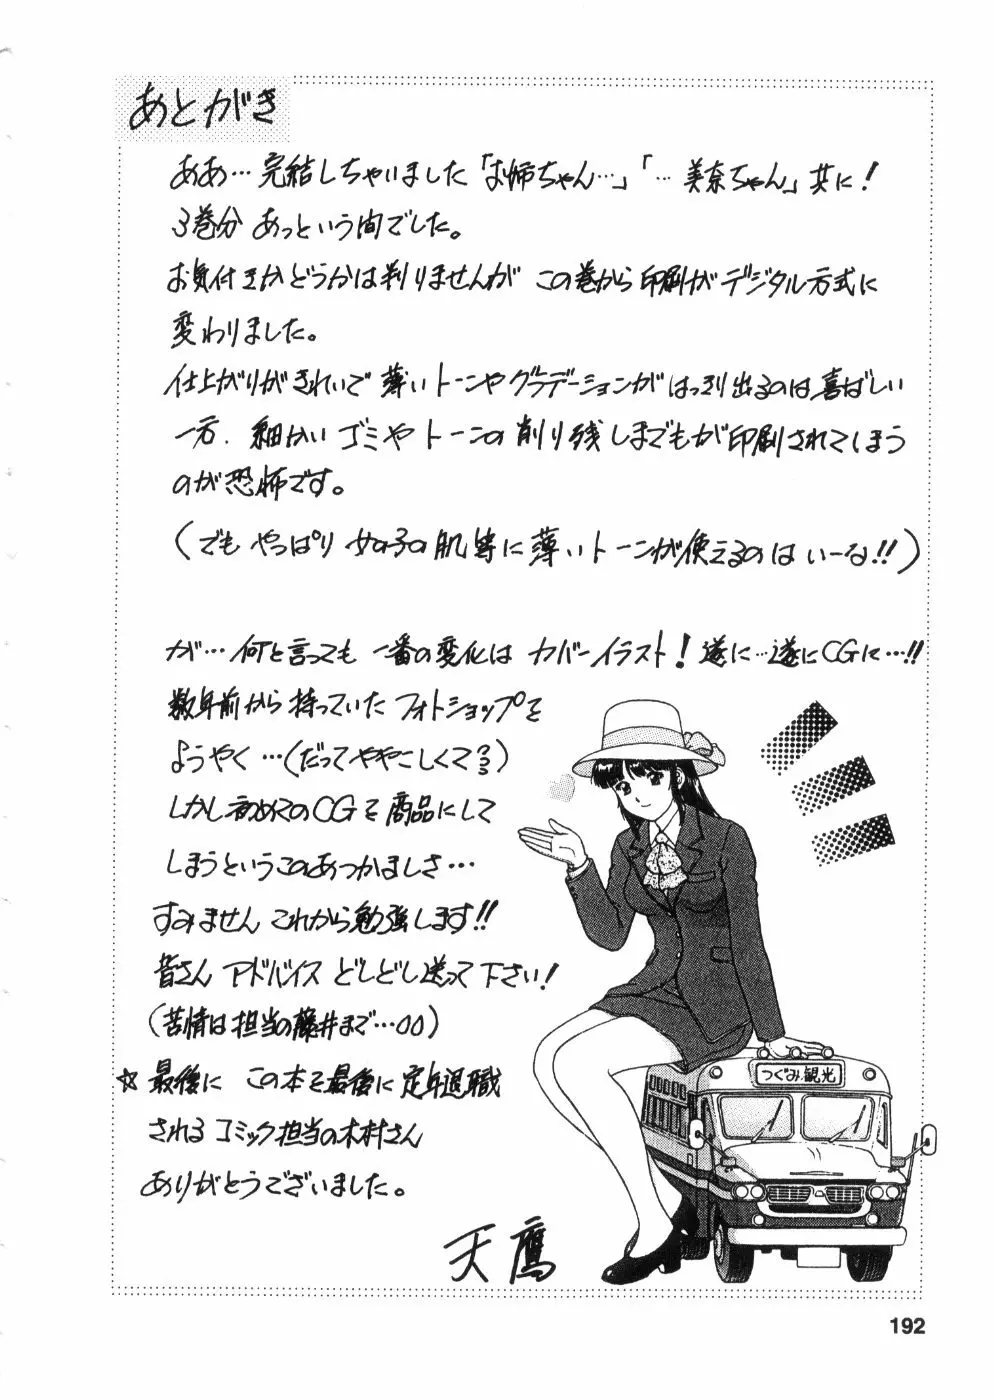 あとがき
ああ…完結しちゃいました「お姉ちゃん…」「…美奈ちゃん」共に!
3巻分 あっという間でした。
お気付きかどうかは判りませんが この巻から印刷がデジタル方式に
変わりました。
仕上がりがきれいで 薄いトーンやグラデーションがはっきり出るのは喜ばしい
一方、細かいゴミやトーンの削り残しまでもが印刷されてしまう
のが恐怖です。
(でも やっぱり 女の子の肌等に薄いトーンが使えるのは いーな!!)
が…何と言っても 一番の変化は カバーイラスト!遂に…遂にCGに…!!
数年前から持っていたフォトショップを
ようやく…(だってややこしくて??)
しかし初めてのCGを商品にして
しまうというこのあつかましさ…
すみません これから勉強します!!
皆さん アドバイス どしどし送って下さい!
(苦情は担当の藤井まで…00)
☆最後に この本を最後に定年退職
されるコミック担当の木村さん
ありがとうございました。
天鷹
つぐみ観光
192